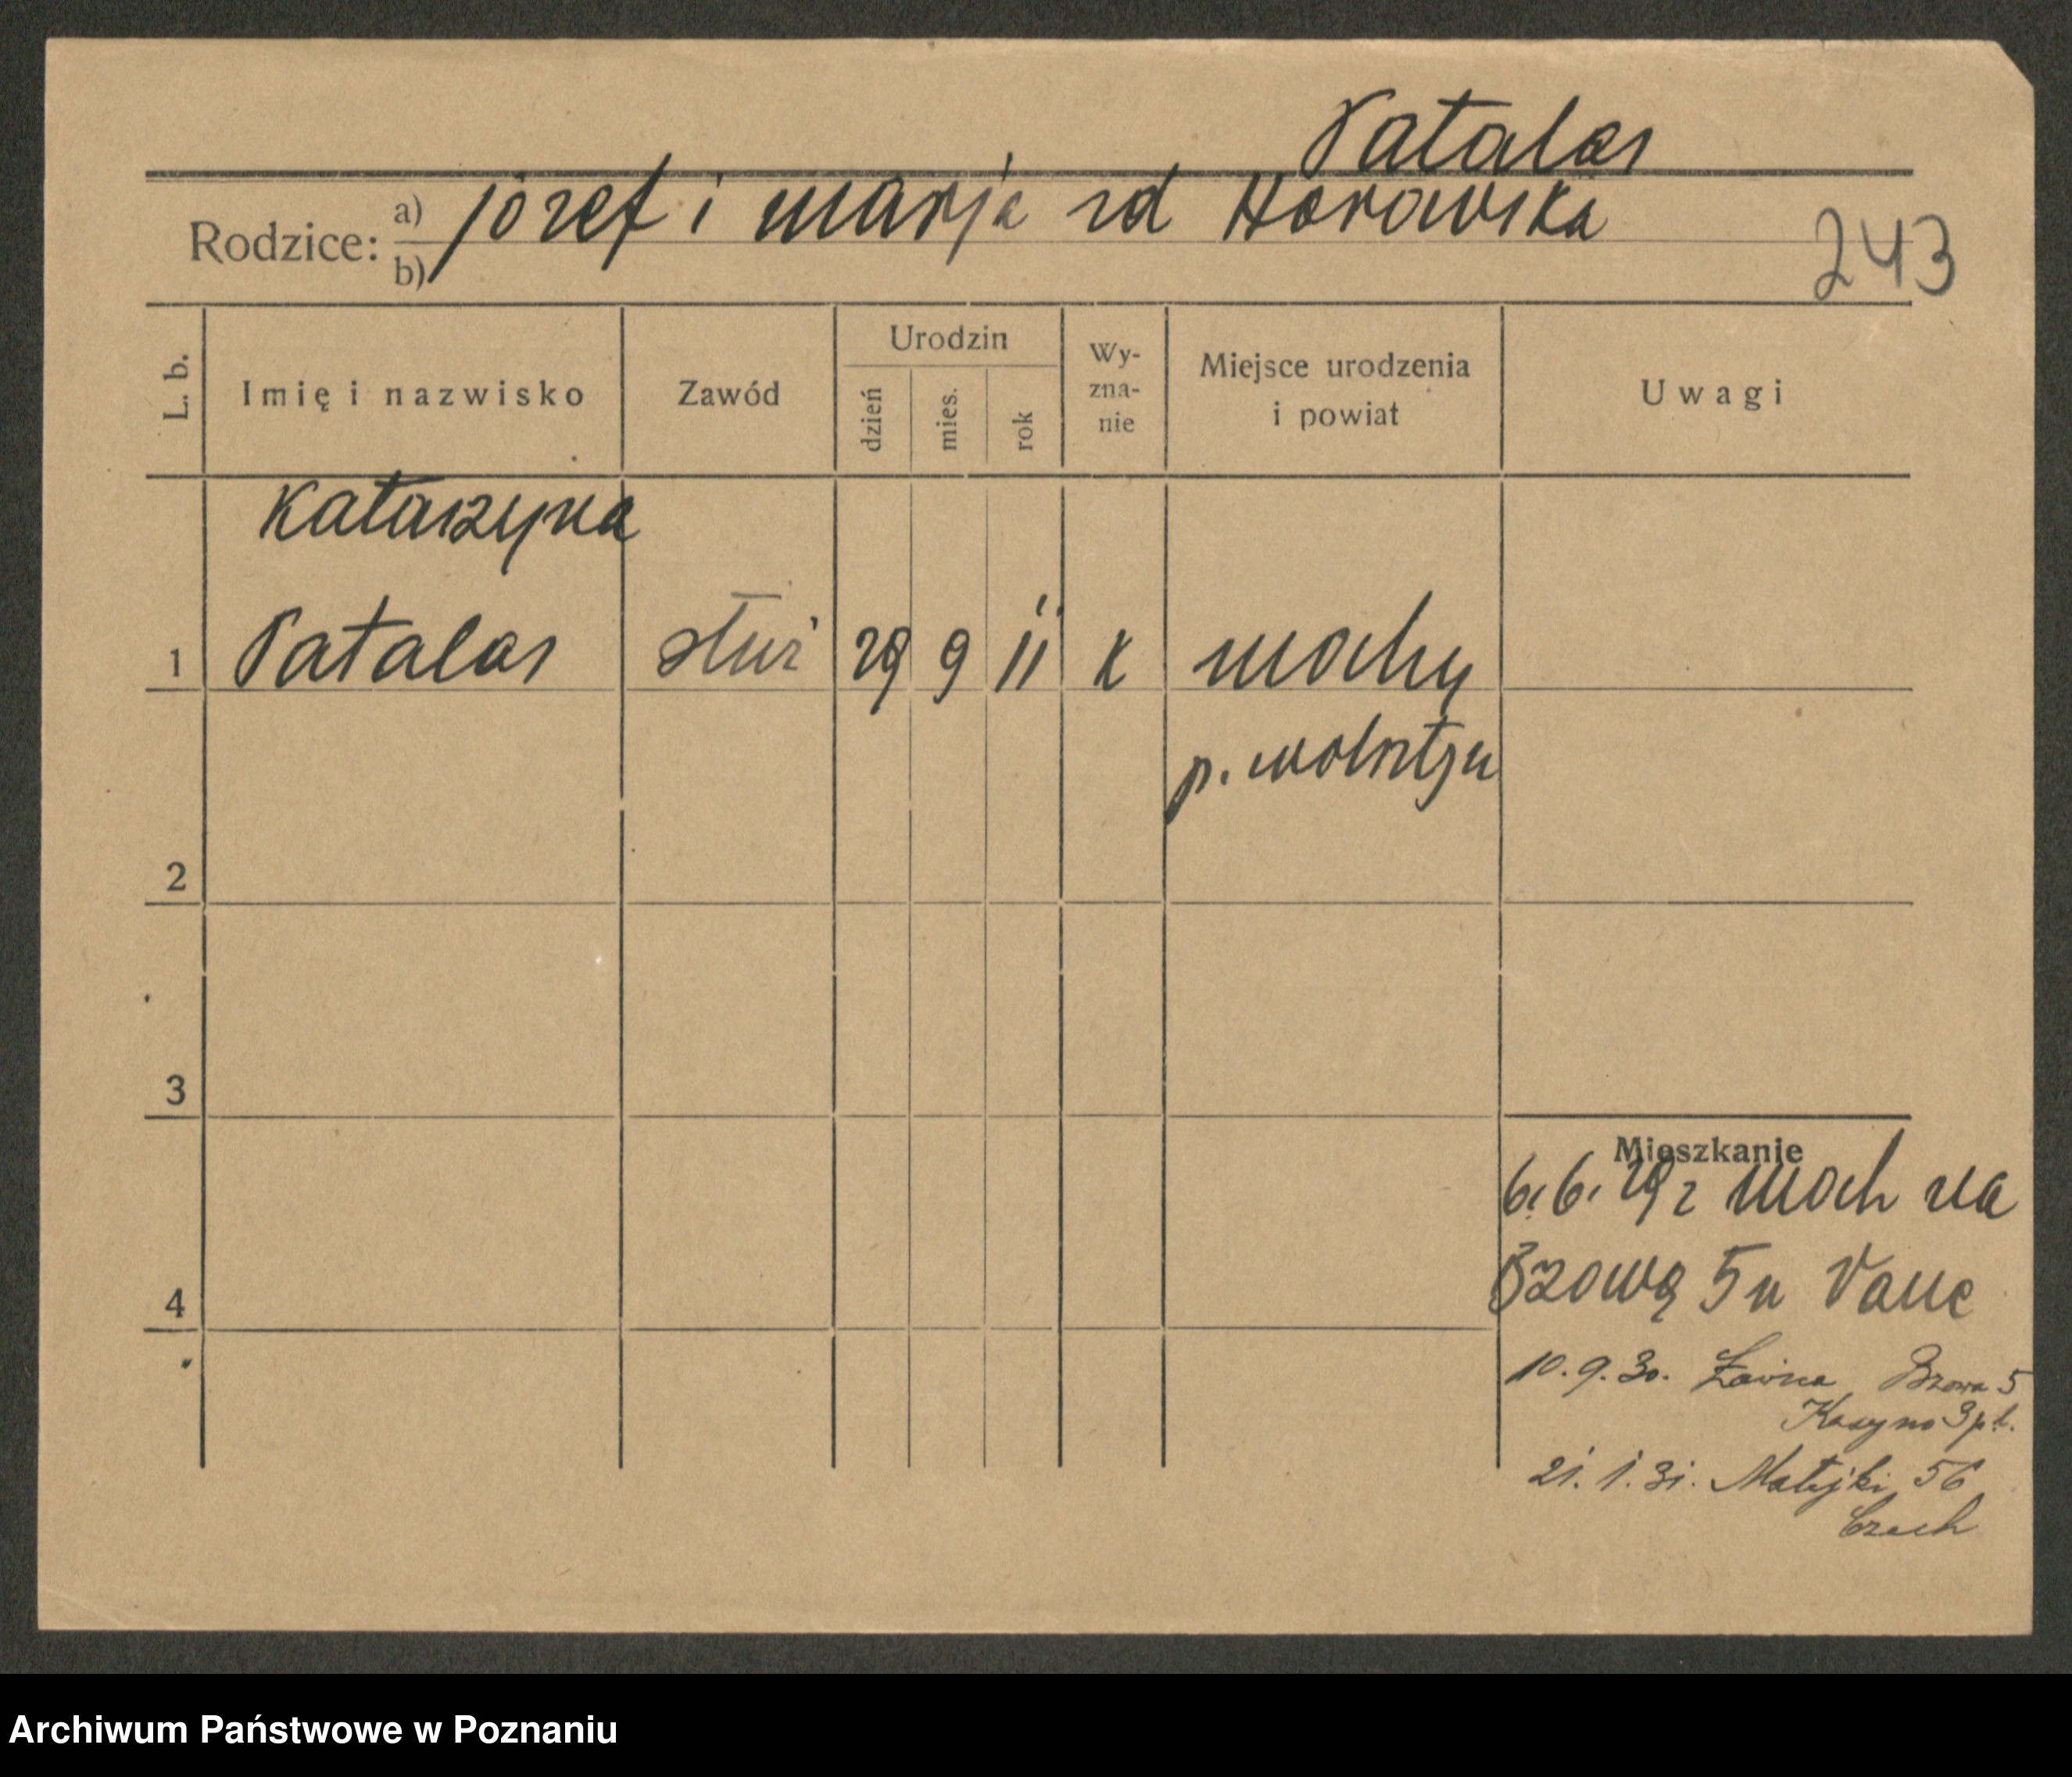 Patalas
Rodzice: a) józef i marja zd Horowska
b)
243
L. b. Imię i nazwisko Zawód Urodzin dzień mies. rok Wy-zna-nie Miejsce urodzenia i powiat Uwagi
Katarzyna
1 Patalas służ 29 9 11 k mochy
p. wolsztyn
2
3
4
Mieszkanie
6.6.29 z moch na
Bzową 5 u
10.9.30. Bzowa 5
Kasyno 3 pt.
21.1.31. Matejki 56
Czech
Archiwum Państwowe w Poznaniu